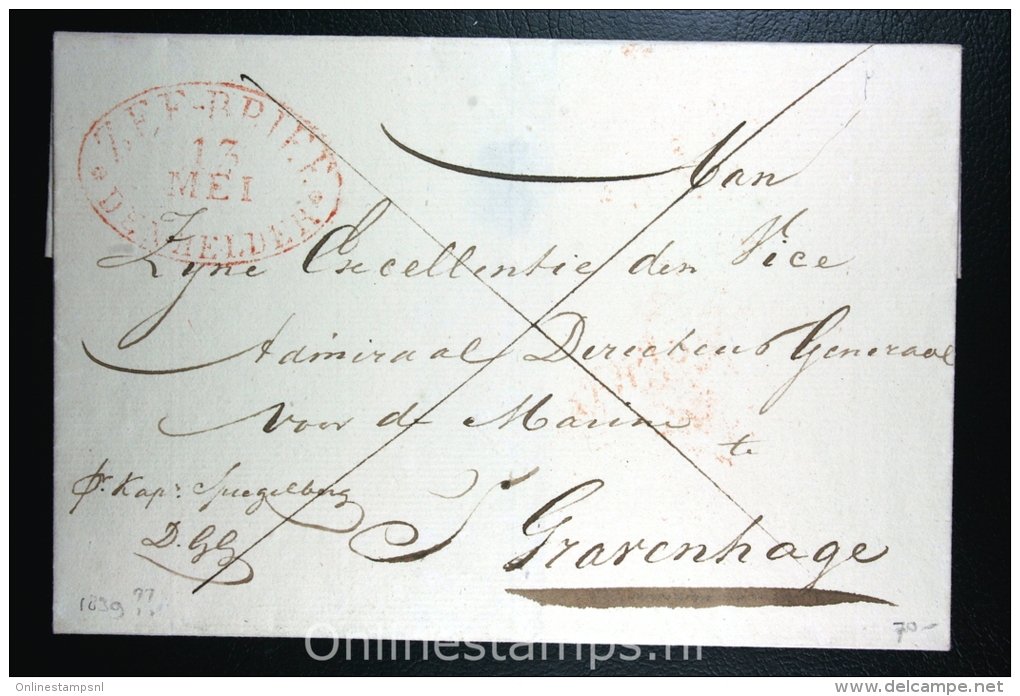 ZEE-BRIEF
13
MEI
DEN HELDER
Aan
Zyne Excellentie den Vice
Admiraal Directeur Generaal
voor de Marine
te
S' Gravenhage
pr. Kapt. Spiegelberg
D. G. G.
1839 ??
70-
Onlinestamps.nl
Onlinestampsnl
www.delcampe.net